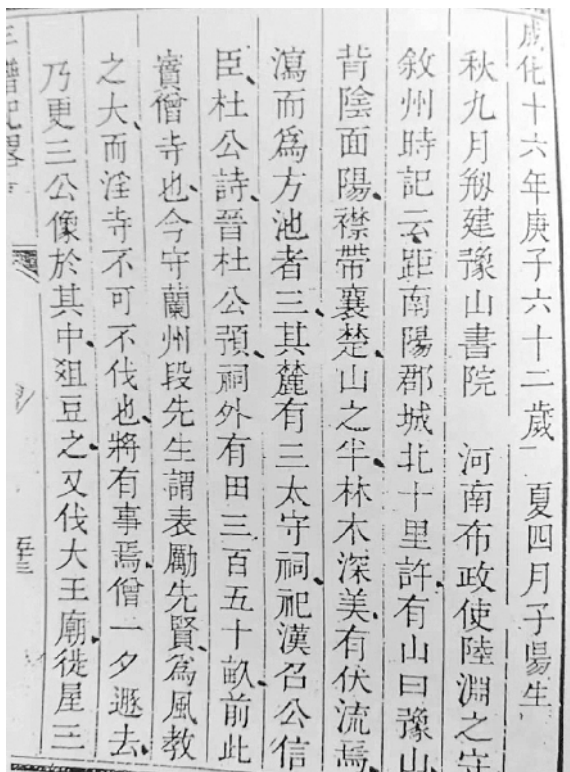 成化十六年庚子六十二歲 夏四月子陽生
秋九月剏建豫山書院 河南布政使陸淵之守
敘州時記云距南陽郡城北十里許有山曰豫山
背陰面陽襟帶襄楚山之半林木深美有伏流焉
瀉而爲方池者三其麓有三太守祠祀漢召公信
臣杜公詩晉杜公預祠外有田三百五十畝前此
實僧寺也今守蘭州段先生謂表勵先賢爲風教
之大而淫寺不可不伐也將有事焉僧一夕遯去
乃更三公像於其中俎豆之又伐大王廟徙屋三
五十三